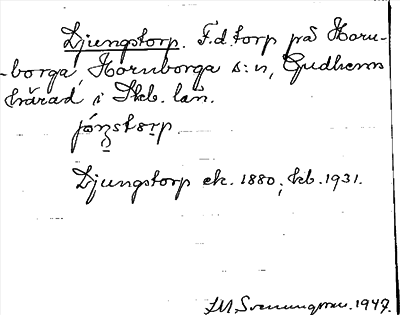 Djungstorp. F.d. torp på Horn-
-borga, Hornborga s:n, Gudhems
härad i Skb. län.
Djungstorp ek. 1880, kb. 1931.
J.M. Svenungsson. 1947.